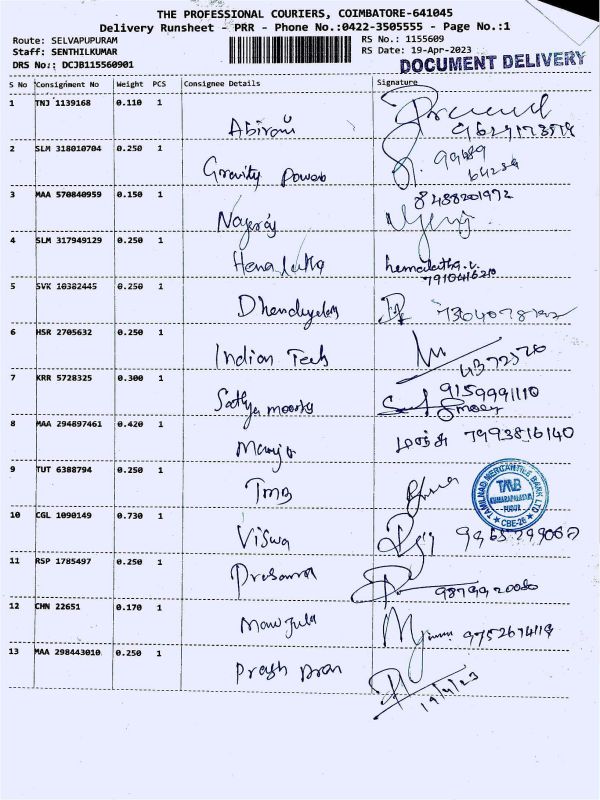 THE PROFESSIONAL COURIERS, COIMBATORE-641045
Delivery Runsheet - PRR - Phone No.:0422-3505555 - Page No.:1
Route: SELVAPUPURAM RS No.: 1155609
Staff: SENTHILKUMAR RS Date: 19-Apr-2023
DRS No.: DCJB115560901 DOCUMENT DELIVERY
S No Consignment No Weight PCS Consignee Details Signature
1 TNJ 1139168 0.110 1
Abirami
2 SLM 318010704 0.250 1 99489
Gravity Powers 64284
3 MAA 570840959 0.150 1 8488201972
Nagaraj
4 SLM 317949129 0.250 1
Hemalatha hemalatha.v.
7910416210
5 SVK 10382445 0.250 1
6 HSR 2705632 0.250 1
Indian Tech 4372570
7 KRR 5728325 0.300 1 9159991110
Sathya moorthy
8 MAA 294897461 0.420 1
Manju மஞ்சு 7993816140
9 TUT 6388794 0.250 1
TMB
TAMILNAD MERCANTILE BANK LTD
TMB
CBE-26
10 CGL 1090149 0.730 1
Viswa
11 RSP 1785497 0.250 1
Prasanna
12 CHN 22651 0.170 1
Manjula
13 MAA 298443010 0.250 1
19/4/23